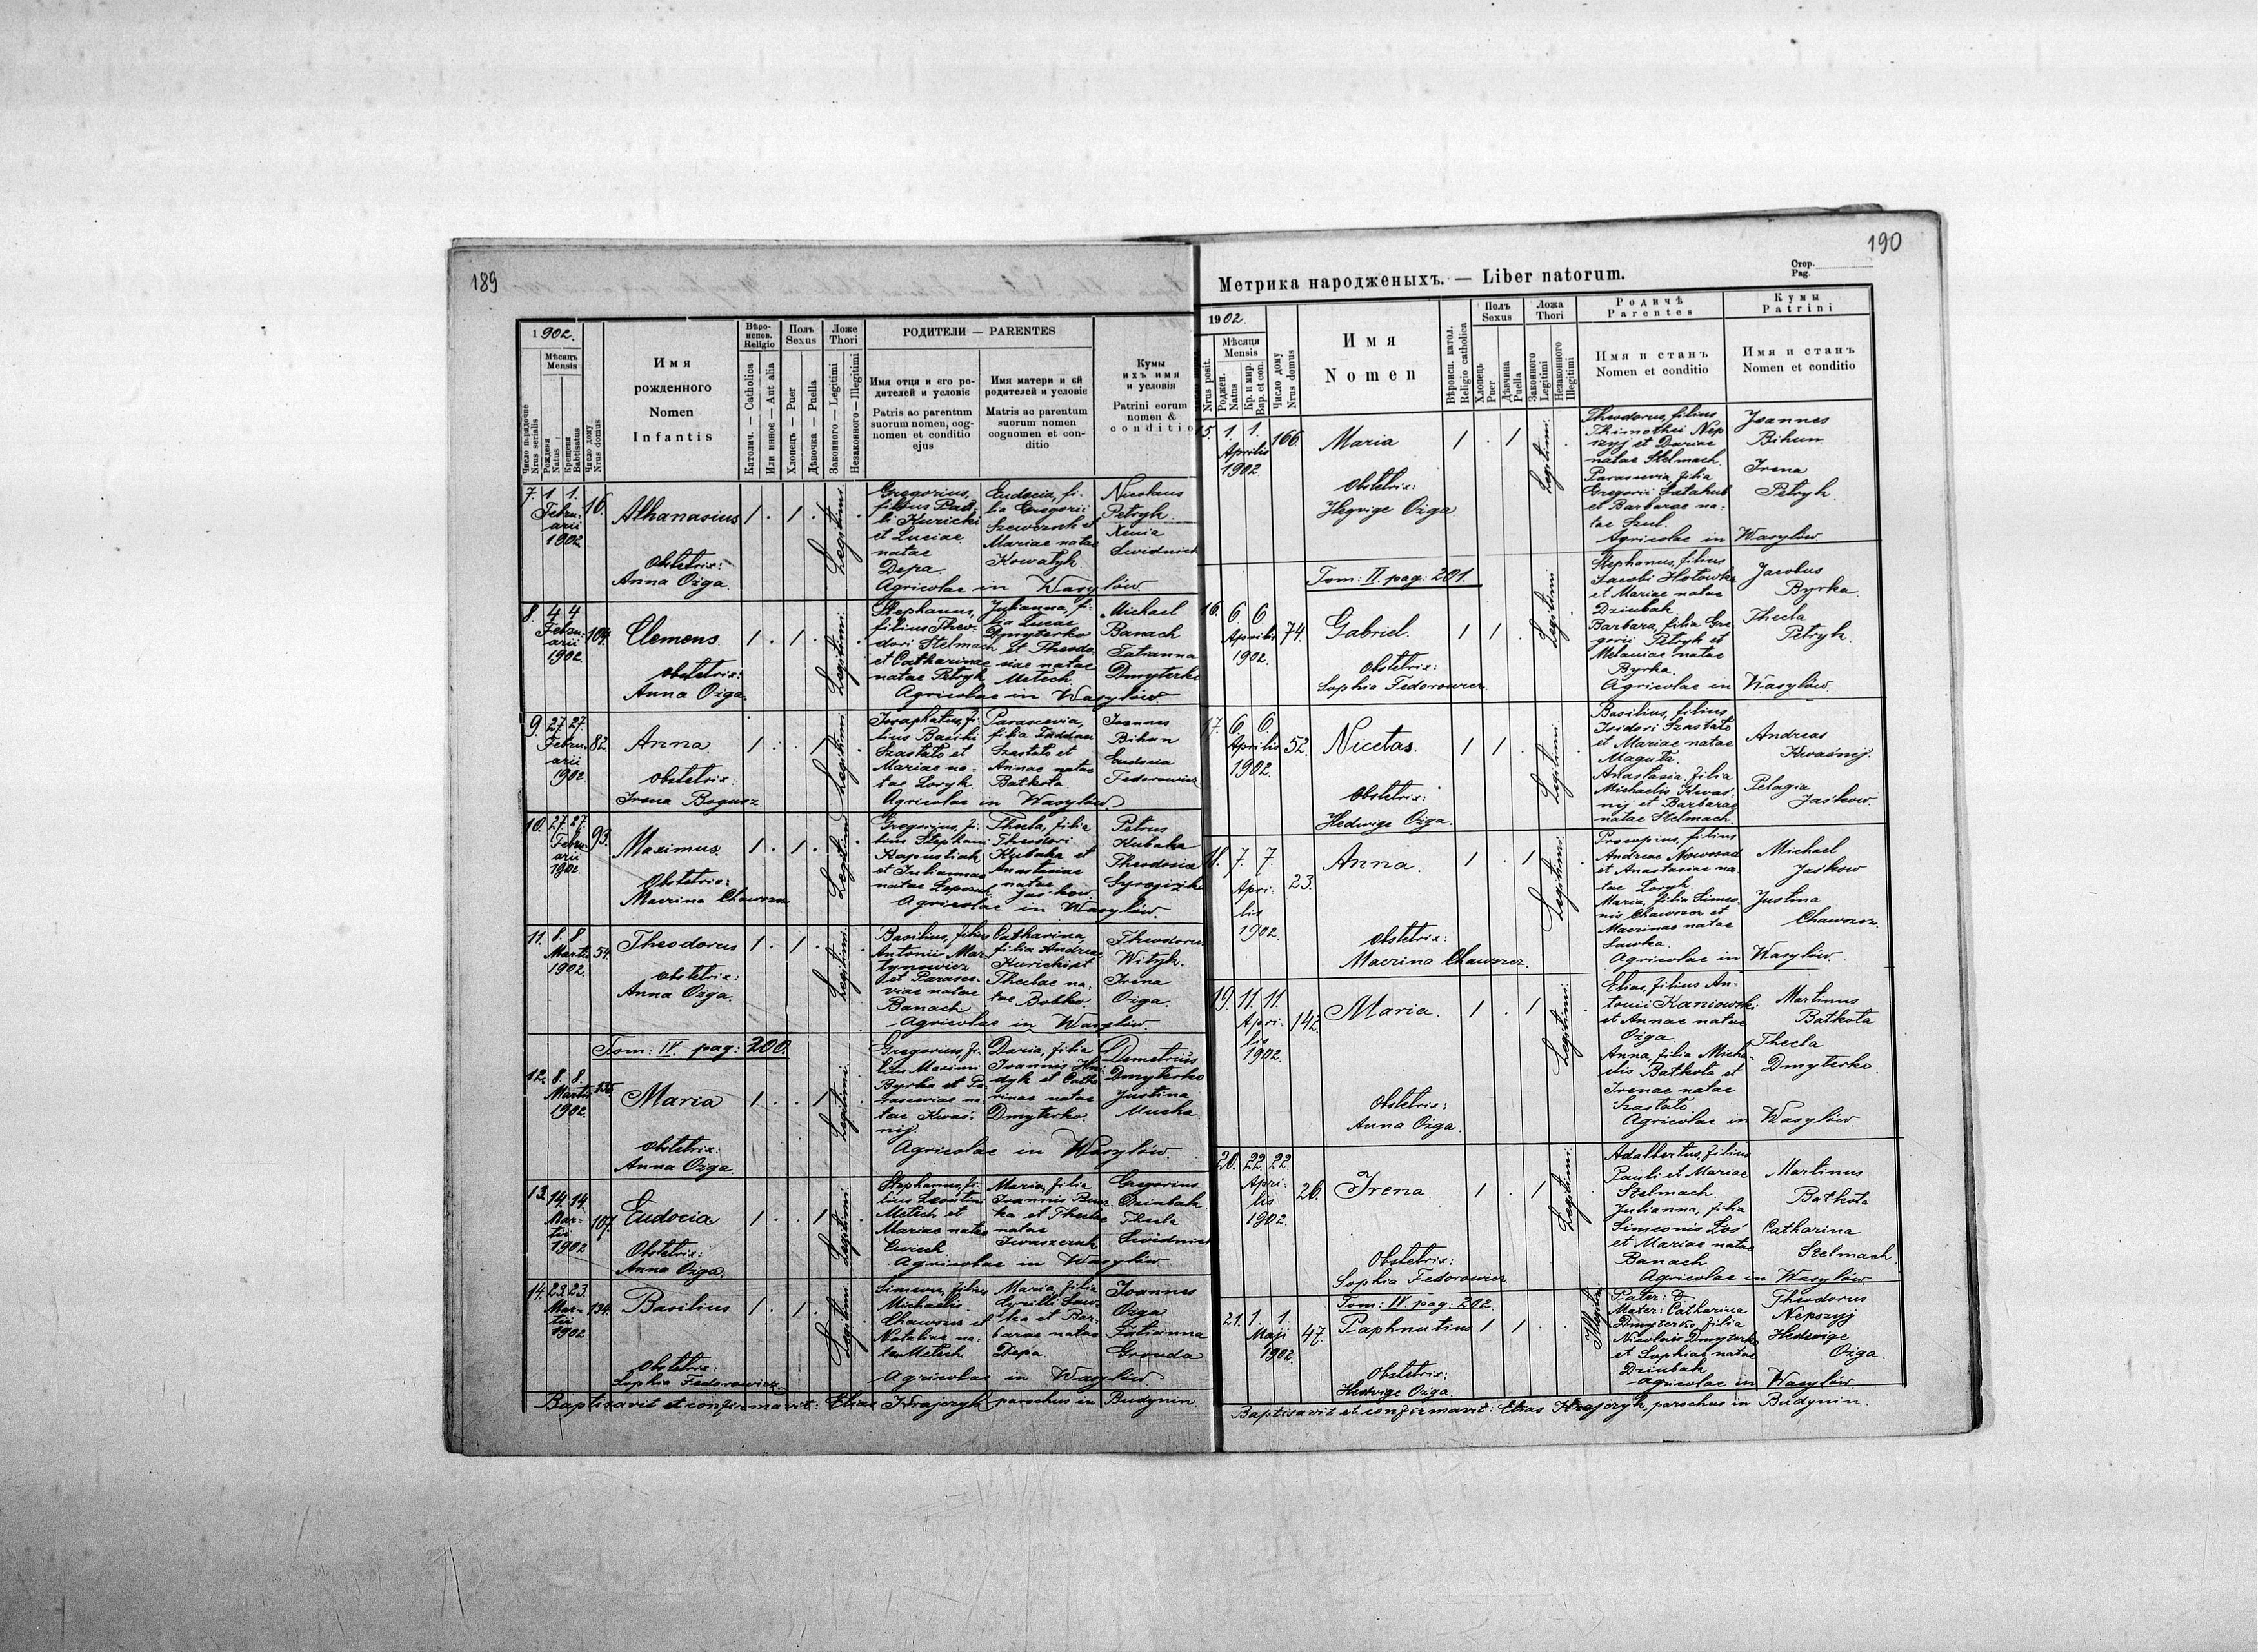 189
1902.
Мѣсяць
Mensis
Число порядочне
Nrus serialis
Рожденя
Natus
Крещеня
Babtisatus
Число дому
Nrus domus
Имя
рожденного
Nomen
Infantis
Вѣро-
испов.
Religio
Католич. — Catholica
Или инное — Aut alia
Полъ
Sexus
Хлопець — Puer
Дѣвочка — Puella
Ложе
Thori
Законного — Legitimi
Незаконного — Illegitimi
РОДИТЕЛИ — PARENTES
Имя отця и єго ро-
дителей и условіє
Patris ac parentum
suorum nomen, cog-
nomen et conditio
ejus
Имя матери и єй
родителей и условіє
Matris ac parentum
suorum nomen
cognomen et con-
ditio
Кумы
ихъ имя
и условія
Patrini eorum
nomen &
conditio
7. 1 1. Febru-
arii
1902
16.
Athanasius
Obstetrix:
Anna Ożga.
1 . 1 . Legitimi .
Gregorius,
filius Pau-
li Kuricki
et Luciae
natae
Depa.
Eudocia, fi-
lia Gregorii
Szewczuk et
Mariae natae
Kowatyk.
Agricolae in Wasylów.
Nicolaus
Petryk.
Xenia
Swidnick
8. 4 4
Febru-
arii
1902.
104.
Clemens.
Obstetrix:
Anna Ożga.
1 . 1 . Legitimi .
Stephanus,
filius Theo-
dori Stelmach
et Catharinae
natae Petryk
Julianna, fi-
lia Lucae
Dmyterko
et Theodo-
siae natae
Metech.
Agricolae in Wasylów.
Michael
Banach
Tatianna
Dmyterko
9. 27 27.
Febru-
arii
1902.
82.
Anna
Obstetrix:
Irena Bogusz
1 . . 1 Legitimi .
Josaphatus, fi-
lius Basilii
Szastało et
Mariae na-
tae Loryk.
Parascevia,
filia Taddaei
Szastało et
Annae natae
Batkota.
Agricolae in Wasylów.
Joannes
Bihun
Eudocia
Fedorowicz
10. 27 27.
Febru-
arii
1902.
93.
Maximus.
Obstetrix:
Macrina Chaworon
1 . 1 . Legitimi .
Gregorius, fi-
lius Stephani
Kapustiak
et Juliannae
natae
Thecla, filia
Theodori
Kubaka et
Anastasiae
natae
Jaśkow.
Agricolae in Wasylów.
Petrus
Kubaka
Theodosia
11. 8. 8.
Martii
1902.
54.
Theodorus
Obstetrix:
Anna Ożga.
1 . 1 . Legitimi .
Basilius, filius
Antonii Mar-
tynowicz
et Parasce-
viae natae
Banach
Catharina,
filia Andreae
Kuricki et
Theclae na-
tae Bobko.
Agricolae in Wasylów.
Theodorus
Wityk.
Irena
Ożga.
Tom: IV. pag: 200.
12. 8. 8.
Martii
1902.
Maria
Obstetrix:
Anna Ożga.
1 . . 1 Legitimi .
Gregorius, fi-
lius Maximi
Byrka et Pa-
rasceviae na-
tae Kwaś-
nij.
Daria, filia
Joannis Hn-
dyk et Catha-
rinae natae
Dmyterko.
Agricolae in Wasylów.
Demetrius
Dmyterko
Justina
Mucha.
13. 14. 14.
Mar-
tii
1902
107.
Eudocia
Obstetrix:
Anna Ożga.
1 . . 1 Legitimi .
Stephanus, fi-
lius Leontini
Metech et
Mariae natae
Cwiech.
Maria, filia
Joannis
et Theclae
natae
Iwaszczuk
Agricolae in Wasylów
Gregorius
Dziubak.
Thecla
Swidnick
14. 23 23.
Mar-
tii
1902
134.
Basilius
Obstetrix:
Sophia Fedorowicz
1 . 1 . Legitimi .
Simeon, filius
Michaelis
Chaworon et
Nataliae na-
tae Metech
Maria, filia
Cyrilli Saw-
ka et Bar-
barae natae
Depa.
Agricolae in Wasylów
Joannes
Ożga
Tatianna
Gronda
Baptisavit et confirmavit: Elias Krajczyk parochus in Budynin.
190
Метрика народженыхъ. — Liber natorum.
Стор.
Pag.
1902.
Nrus posit.
Мѣсяця
Mensis
Рожден.
Natus
Кр. и мир.
Bap. et con.
Число дому
Nrus domus
Имя
Nomen
Вѣроисп. катол.
Religio catholica
Полъ
Sexus
Хлопець
Puer
Дѣвчина
Puella
Ложа
Thori
Законного
Legitimi
Незаконного
Illegitimi
Родичѣ
Parentes
Имя и станъ
Nomen et conditio
Кумы
Patrini
Имя и станъ
Nomen et conditio
15. 1. 1.
Aprilis
1902.
166.
Maria
Obstetrix:
Hegvige Ożga
1 . 1 Legitimi .
Theodorus, filius
Thimothei Nep-
szyj et Dariae
natae Stelmach.
Parascevia, filia
Gregorii Satahub
et Barbarae na-
tae Szul.
Agricolae in Wasylów.
Joannes
Bihun
Irena
Petryk.
Tom: II. pag: 201.
16. 6 6
Aprilis
1902.
74.
Gabriel.
Obstetrix:
Sophia Fedorowicz.
1 1 . Legitimi
Stephanus, filius
Jacobi Hotowka
et Mariae natae
Dziubak.
Barbara, filia Gre-
gorii Petryk et
Melaniae natae
Byrka.
Agricolae in Wasylów.
Jacobus
Byrka.
Thecla
Petryk.
17. 6 6.
Aprilis
1902.
52.
Nicetas.
Obstetrix:
Hedwige Ożga.
1 1 . Legitimi .
Basilius, filius
Isidori Szastało
et Mariae natae
Maguta.
Anastasia, filia
Michaelis Kwaś-
nij et Barbarae
natae Stelmach.
Andreas
Kwaśnij.
Pelagia
Jaśkow.
18. 7. 7.
Apri-
lis
1902.
23.
Anna.
Obstetrix:
Macrina Chaworon.
1 . 1 Legitimi .
Procopius, filius
Andreae Nowosad
et Anastasiae na-
tae Loryk.
Maria, filia Simeo-
nis Chaworon et
Macrinae natae
Sawka.
Agricolae in Wasylów.
Michael
Jaśkow
Justina
Chaworon.
19. 11. 11.
Apri-
lis
1902.
142.
Maria.
Obstetrix:
Anna Ożga.
1 . 1 Legitimi .
Elias, filius An-
tonii Kaniowski
et Annae natae
Ożga.
Anna, filia Micha-
elis Batkota et
Irenae natae
Szastało.
Agricolae in Wasylów.
Martinus
Batkota
Thecla
Dmyterko.
20. 22. 22.
Apri-
lis
1902.
26.
Irena
Obstetrix:
Sophia Fedorowicz
1 . 1 Legitimi .
Adalbertus, filius
Pauli et Mariae
Stelmach.
Julianna, filia
Simeonis Łoś
et Mariae natae
Banach
Agricolae in Wasylów
Martinus
Batkota
Catharina
Stelmach.
Tom: IV pag: 202.
21. 1. 1.
Maji
1902.
47.
Paphnutius
Obstetrix:
Hedwige Ożga.
1 1 . . Illegitimi
Pater:
Mater: Catharina
Dmyterko, filia
Nicolais Dmyterko
et Sophiae natae
Dziubak
Agricolae in Wasylów.
Theodorus
Nepszyj
Hedwige
Ożga.
Baptisavit et confirmavit: Elias Krajczyk, parochus in Budynin.